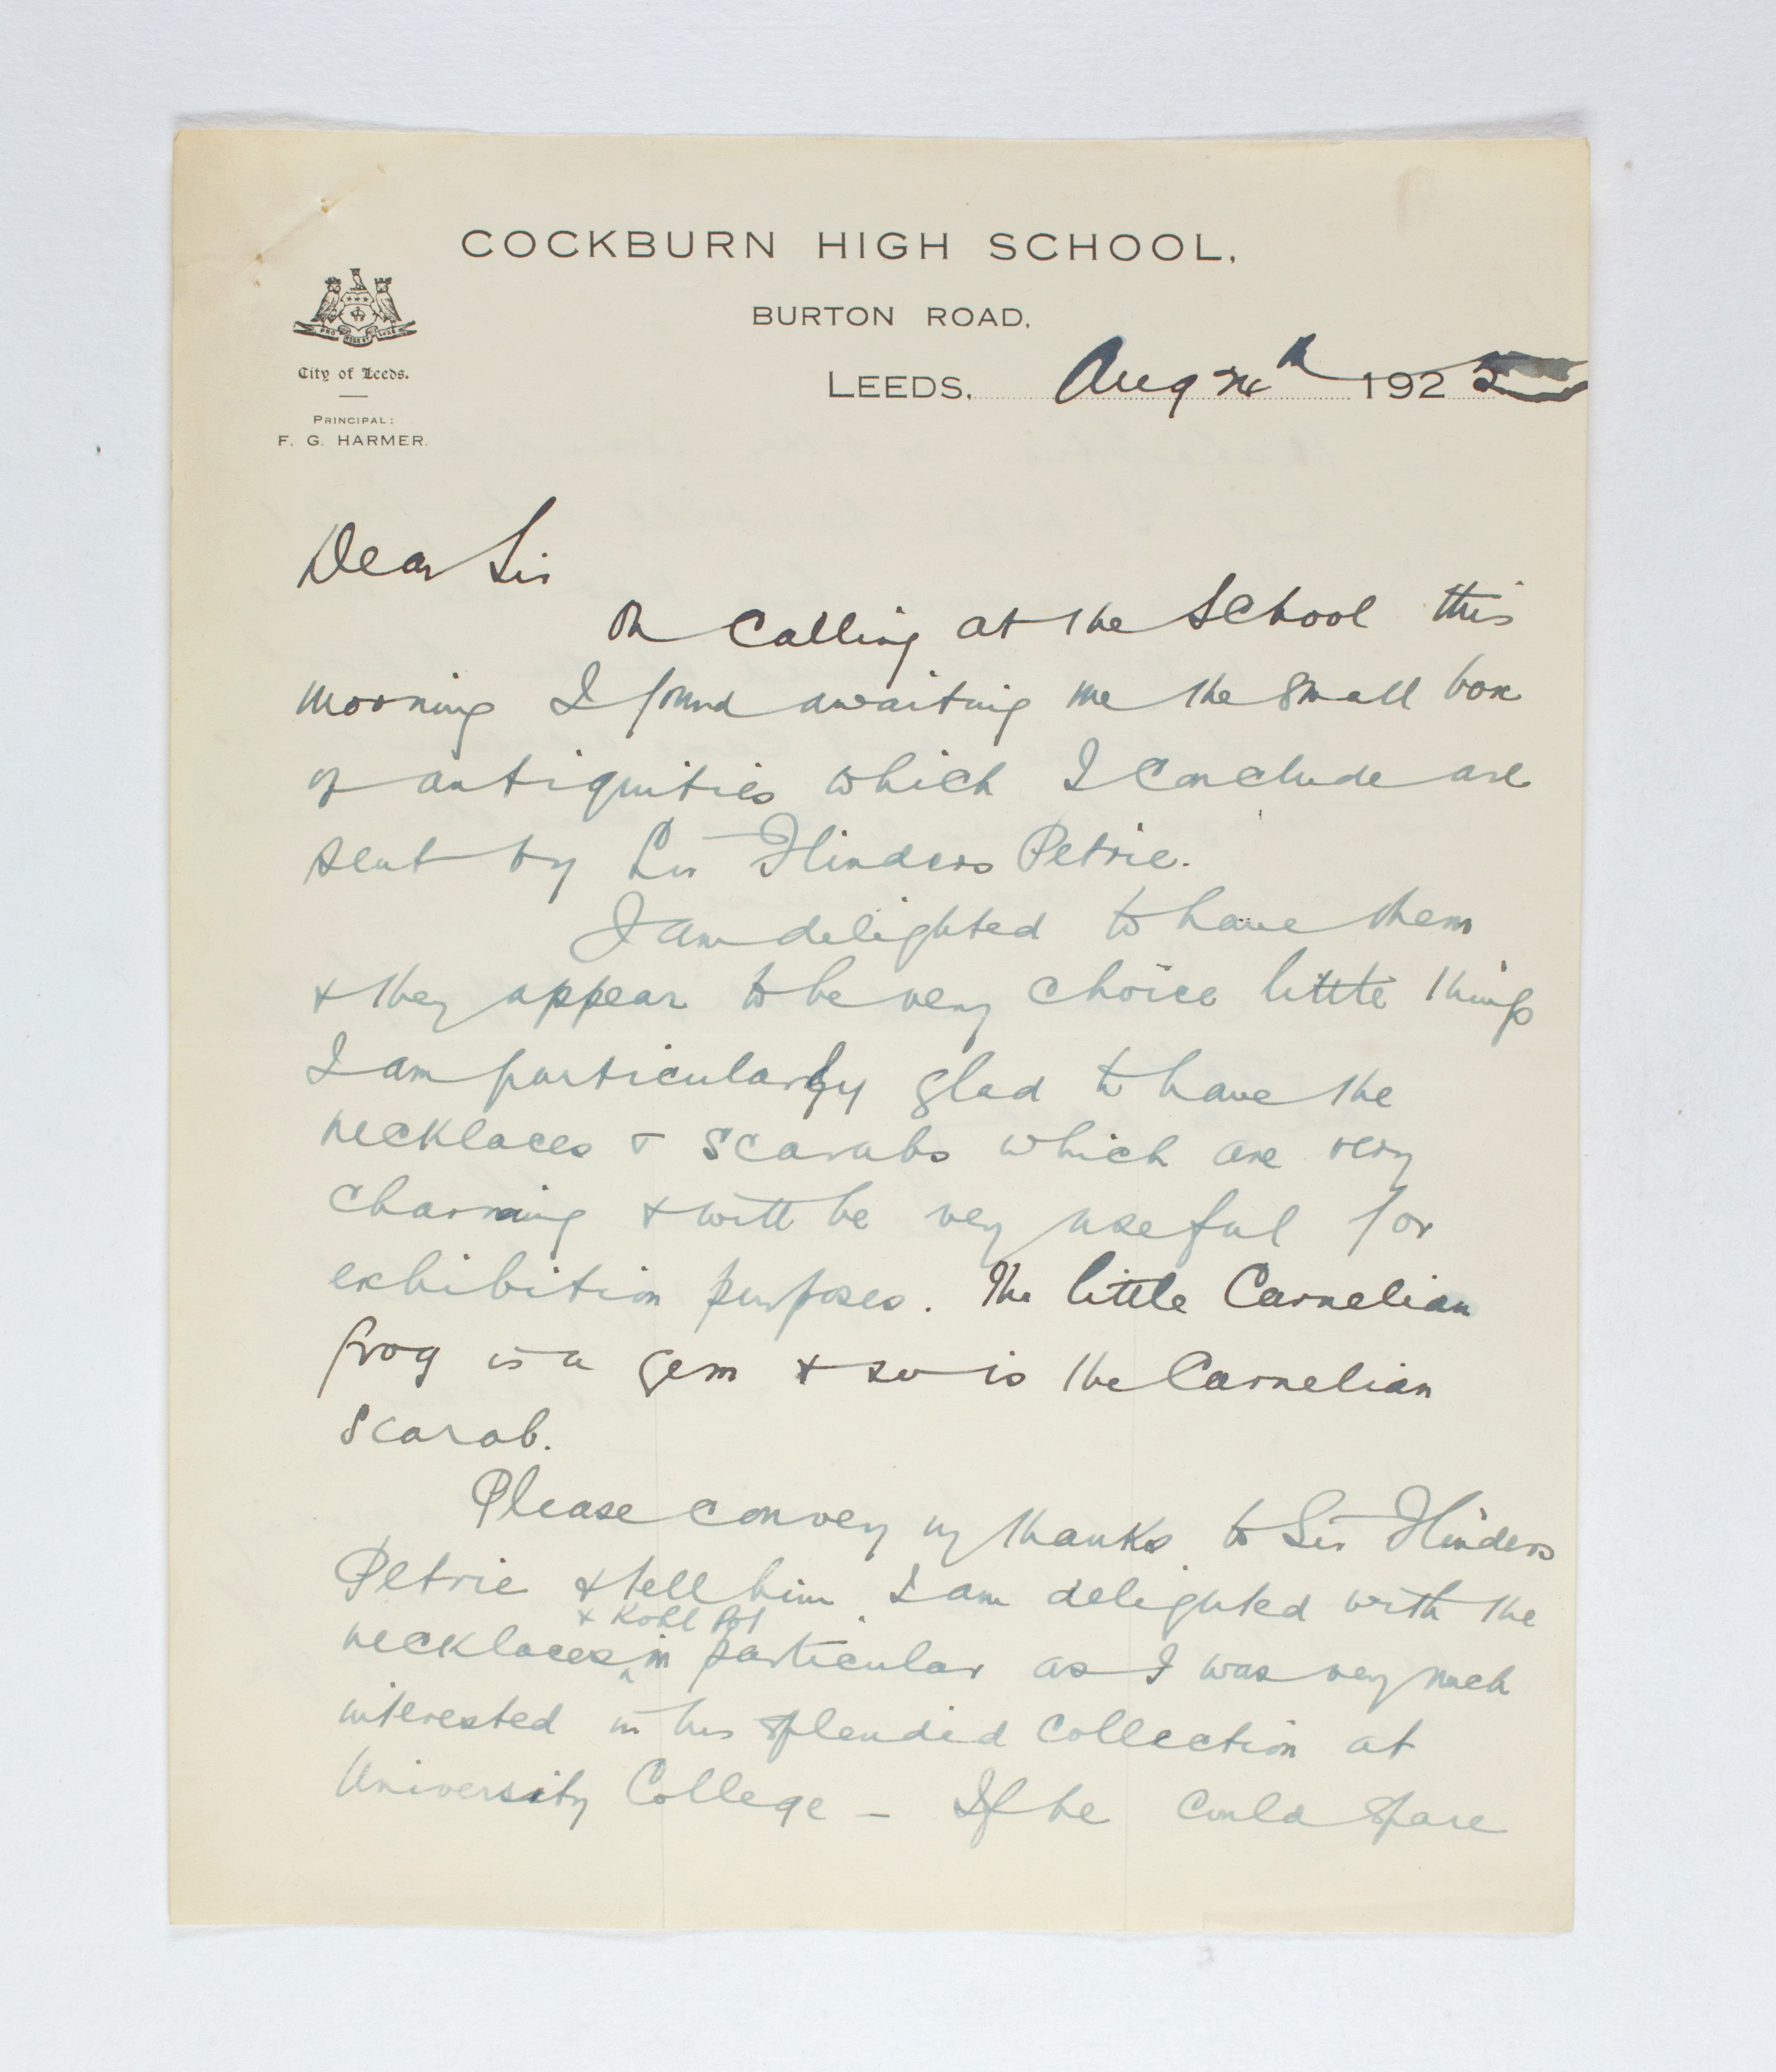 COCKBURN HIGH SCHOOL,
BURTON ROAD,
LEEDS, Aug 24th 1925
PRO REGE ET LEGE
City of Leeds.
PRINCIPAL:
F. G. HARMER.
Dear Sir
On calling at the School this
morning I found awaiting me the small box
of antiquities which I conclude are
sent by Sir Flinders Petrie.
I am delighted to have them
& they appear to be very choice little things
I am particularly glad to have the
necklaces & scarabs which are very
charming & will be very useful for
exhibition purposes. The little Carnelian
frog is a gem & so is the Carnelian
scarab.
Please convey my thanks to Sir Flinders
Petrie & tell him I am delighted with the
& Kohl Pot
necklaces in particular as I was very much
interested in his splendid collection at
University College – If he could spare